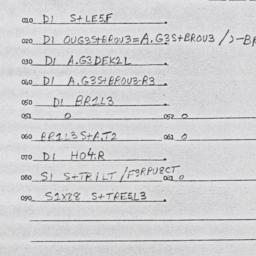 010 DI S+LE5.F
020 DI OUG3S+BROU3=A.G3S+BROU3/2-BR
030 DI A.G3DEK2L
040 DI A.G3S+BROU3-R3
050 DI BR1L3
051 0 052 0
060 BR1L3S+A.T2 061 0
070 DI HO4.R
080 S1 S+TR1LT/F3RPU8CT 0
090 S2X28 S+TRE5L3